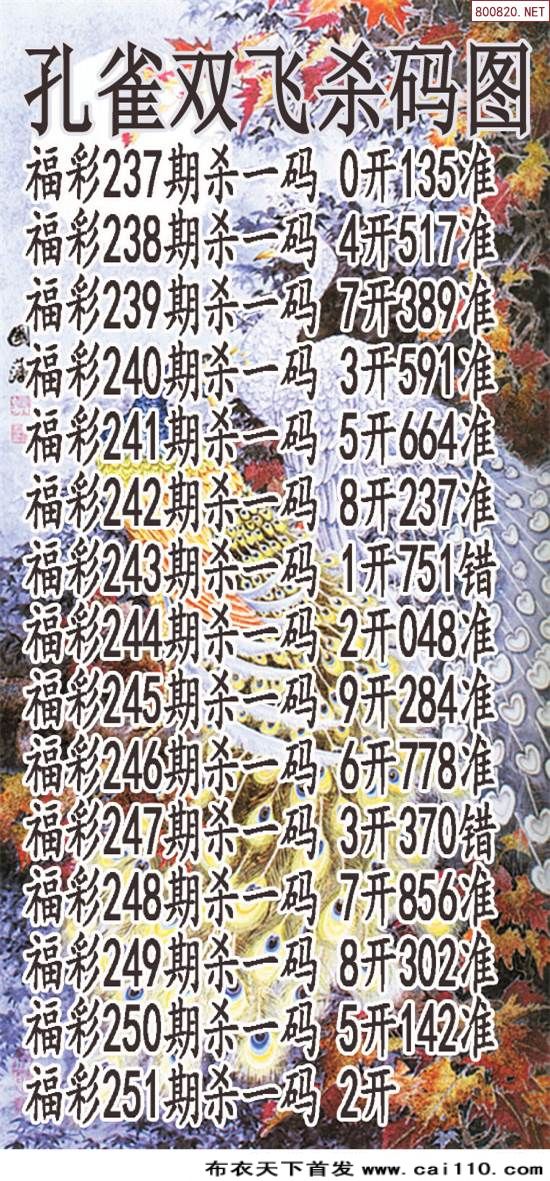 800820.NET
孔雀双飞杀码图
福彩237期杀一码 0开135准
福彩238期杀一码 4开517准
福彩239期杀一码 7开389准
福彩240期杀一码 3开591准
福彩241期杀一码 5开664准
福彩242期杀一码 8开237准
福彩243期杀一码 1开751错
福彩244期杀一码 2开048准
福彩245期杀一码 9开284准
福彩246期杀一码 6开778准
福彩247期杀一码 3开370错
福彩248期杀一码 7开856准
福彩249期杀一码 8开302准
福彩250期杀一码 5开142准
福彩251期杀一码 2开
布衣天下首发 www.cai110.com